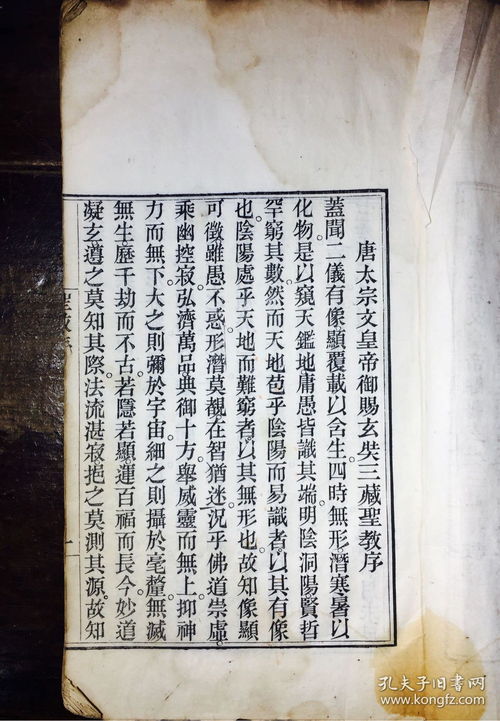 唐太宗文皇帝御賜玄奘三藏聖教序
蓋聞二儀有像。顯覆載以含生。四時無形。潛寒暑以
化物。是以窺天鑑地。庸愚皆識其端。明陰洞陽。賢哲
罕窮其數。然而天地苞乎陰陽而易識者。以其有像
也。陰陽處乎天地而難窮者。以其無形也。故知像顯
可徵。雖愚不惑。形潛莫覩。在智猶迷。況乎佛道崇虛。
乘幽控寂。弘濟萬品。典御十方。舉威靈而無上。抑神
力而無下。大之則彌於宇宙。細之則攝於毫釐。無滅
無生。歷千劫而不古。若隱若顯。運百福而長今。妙道
凝玄。遵之莫知其際。法流湛寂。挹之莫測其源。故知
聖教序
一
孔夫子旧书网
www.kongfz.com